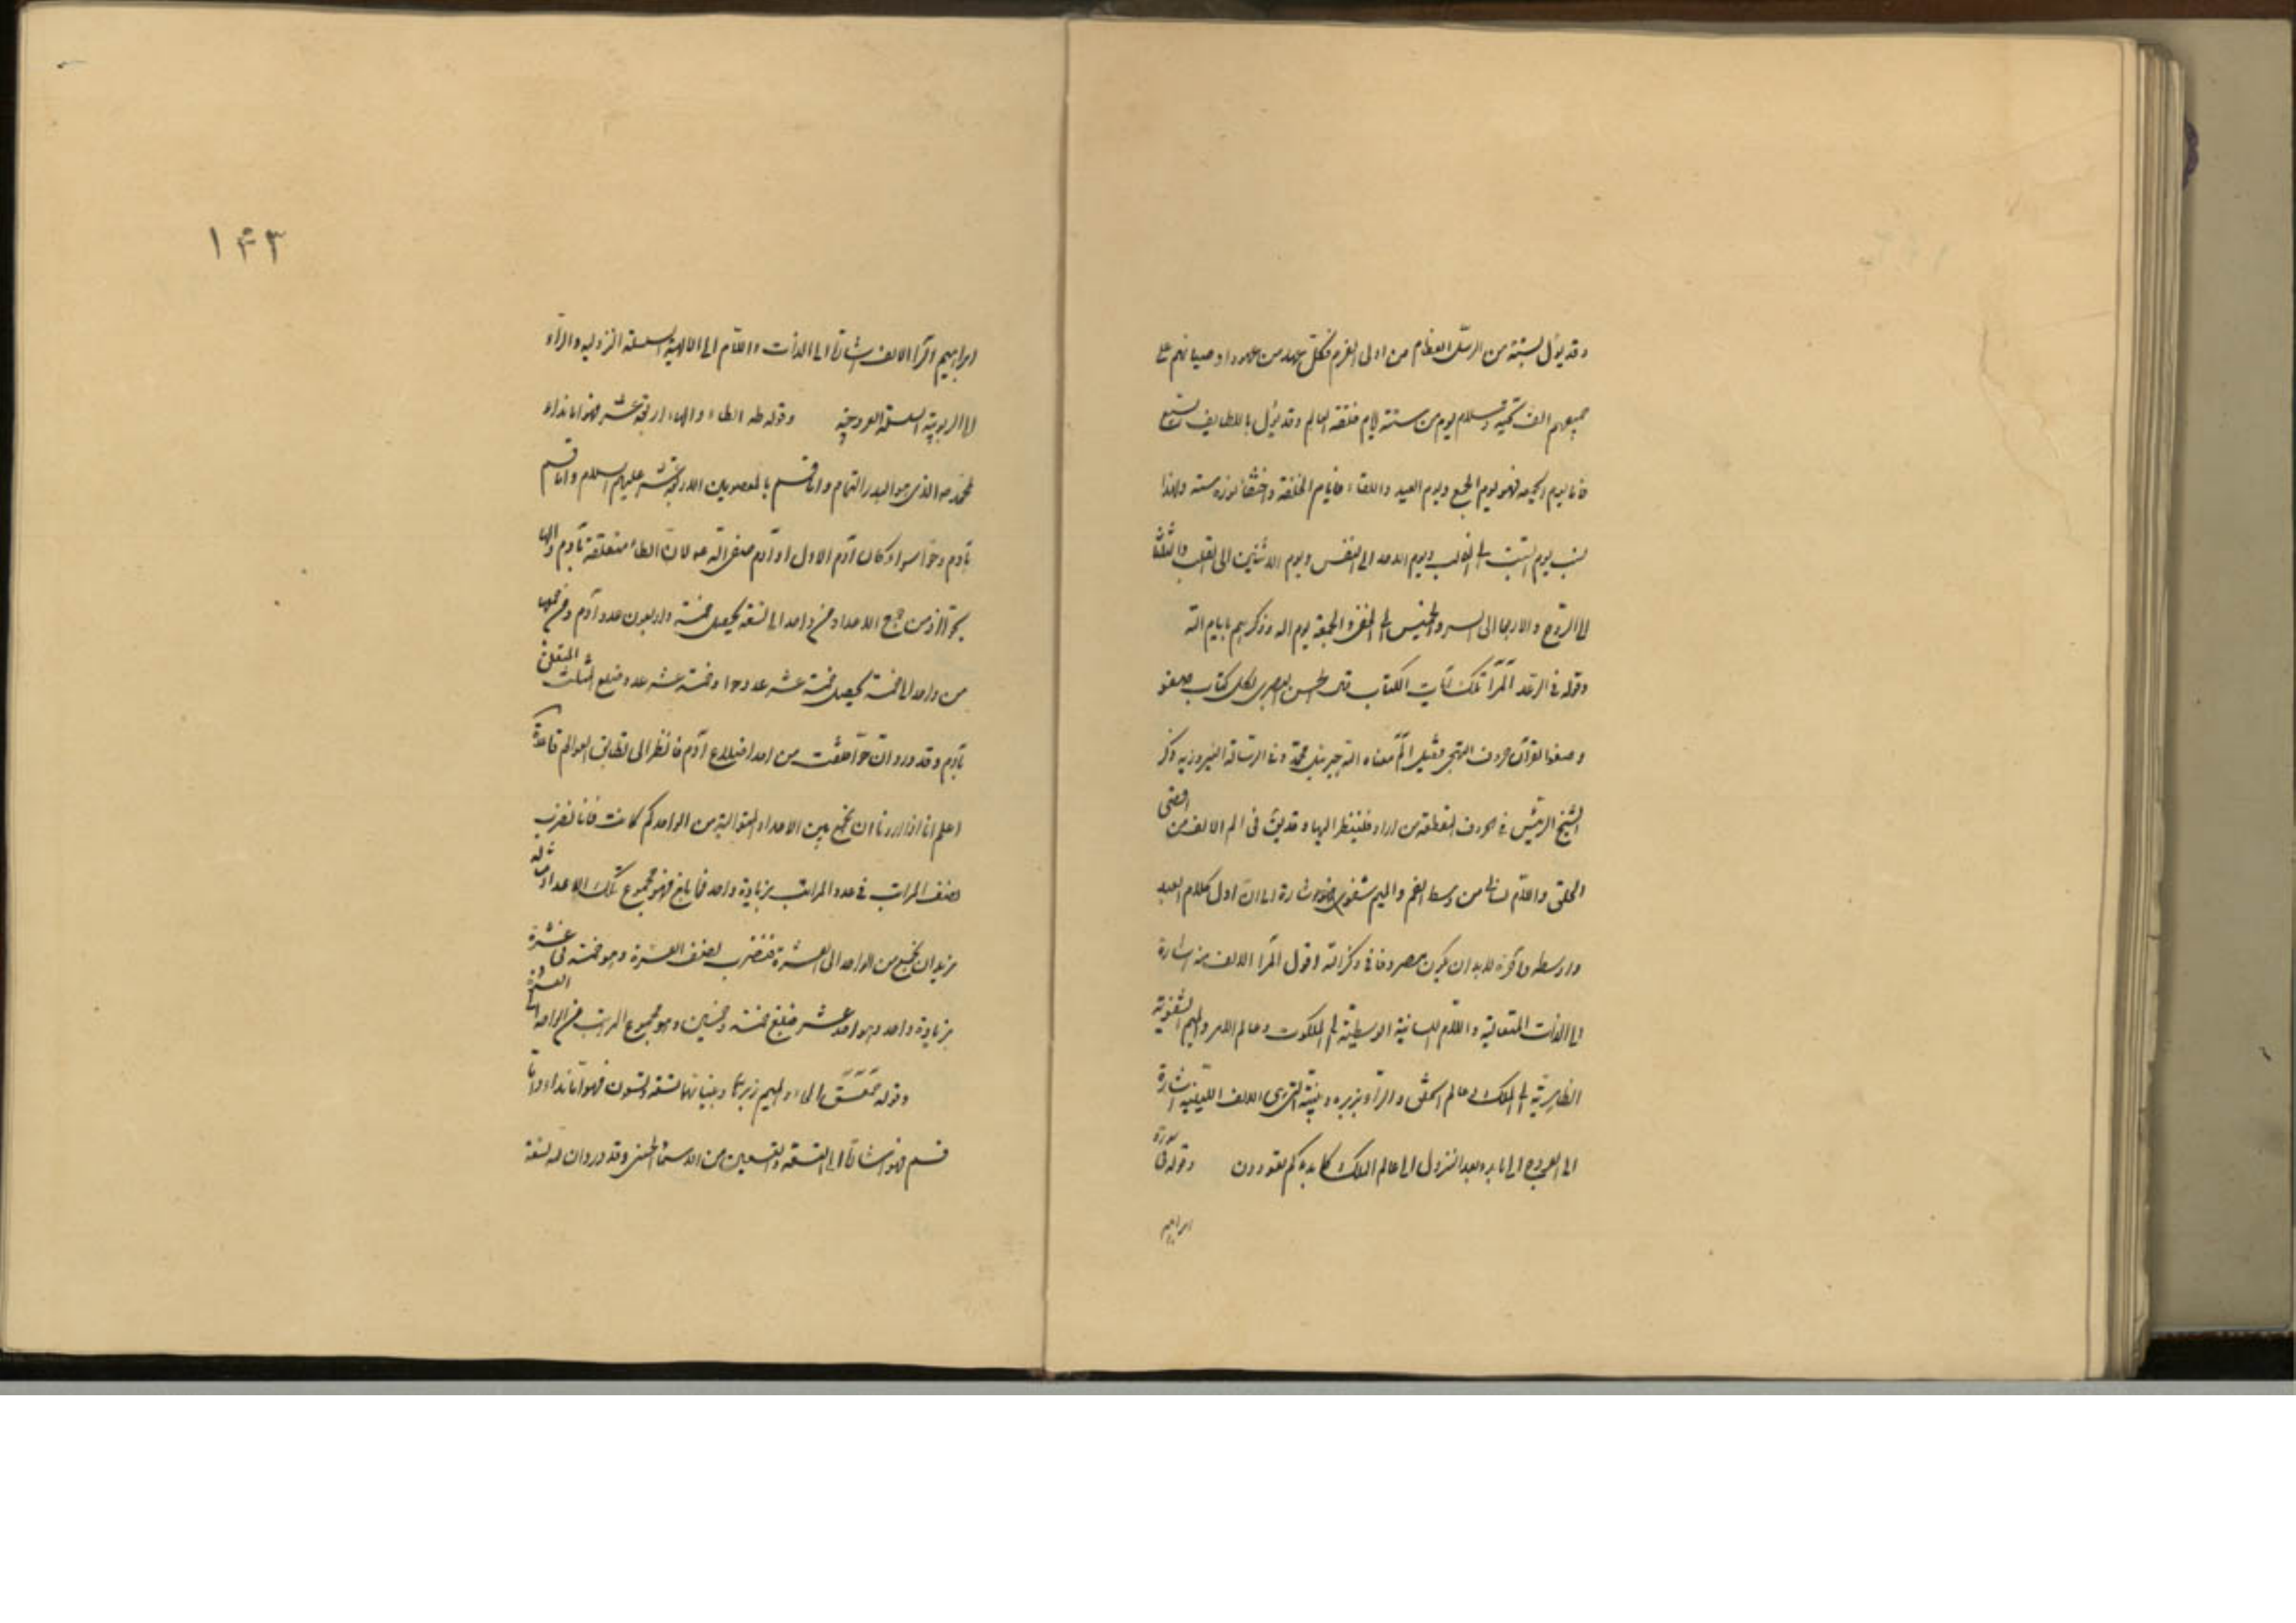 وقد يؤل بستة من الرسل العظام من اولى العزم فكل عهد من عهود اوصيائهم على
جميعهم الف تحية وسلام يوم من ستة ايام خلقة العالم وقد يؤل باللطايف السبع
فاما يوم الجمعة فهو يوم الجمع ويوم العيد واللقاء فايام الخلقة واختفاء نوره ستة ولهذا
نسب يوم السبت الى القالب ويوم الاحد الى النفس ويوم الاثنين الى القلب والثلثا
الى الروح والاربعا الى السر والخميس الى الخفى والجمعة يوم الله وذكرهم بايام الله
وقوله فى الرعد المر تلك آيات الكتاب قال الحسن البصرى لكل كتاب صفو
وصفو القرآن حروف التهجى فقيل الم معناه الله جبرئيل محمد وفى الرسالة النيروزية ذكر
الشيخ الرئيس فى الحروف المقطعة من اراد فلينظر اليها وقد يق فى الم الالف من اقصى
الحلق واللام من وسط الفم والميم شفوى اشارة الى ان اول كلام العبد
واوسطه وآخره لابد ان يكون مصروفا فى ذكر الله اقول المر الالف منه اشارة
الى الذات المتعالية واللام اللسانية الوسطية الى الملكوت وعالم الامر والميم الشفوية
الظاهرية الى الملك اى عالم الخلق والراء بزبره وبينته التى هى الالف اللينية اشارة
الى العروج الى ما بدء بعد النزول الى عالم الملك كما بدءكم تعودون وقوله فى سورة
ابراهيم
١٤٣
ابراهيم الر الالف اشارة الى الذات واللام الى الالهية السلسلة النزولية والراء
الى الربوبية السلسلة العروجية وقوله طه الطاء والهاء اربعة عشر فهو اما نداء
لمحمد ص الذى هو البدر التمام واما قسم بالمعصومين الاربعة عشر عليهم السلام واما قسم
بآدم وحوا سواء كان آدم الاول او آدم صفى الله ع لان الطاء متعلقة بآدم والهاء
بحوا اذ من جمع الاعداد من واحد الى تسعة يحصل خمسة واربعون عدد آدم ومن جمعها
من واحد الى خمسة يحصل خمسة عشر عدد حوا وخمسة عشر عدد ضلع المثلث المتعلق
بآدم وقد ورد ان حوا خلقت من احد اضلاع آدم فانظر الى تطابق العوالم قاعدة
اعلم انا اذا اردنا ان نجمع بين الاعداد المتوالية من الواحد كم كانت فانا نضرب
نصف المراتب فى عدد المراتب بزيادة واحد فما بلغ فهو مجموع تلك الاعداد مثاله
نريد ان نجمع من الواحد الى العشرة فنضرب نصف العشرة وهو خمسة فى عشرة
بزيادة واحد وهو احد عشر فبلغ خمسة وخمسين وهو مجموع المراتب من الواحد الى العشرة
وقوله حمعسق الحاء والميم زبرهما وبيناتهما تسعة وتسعون فهو اما نداء واما
قسم فهو اشارة الى التسعة والتسعين من الاسماء الحسنى وقد ورد ان لله تسعة